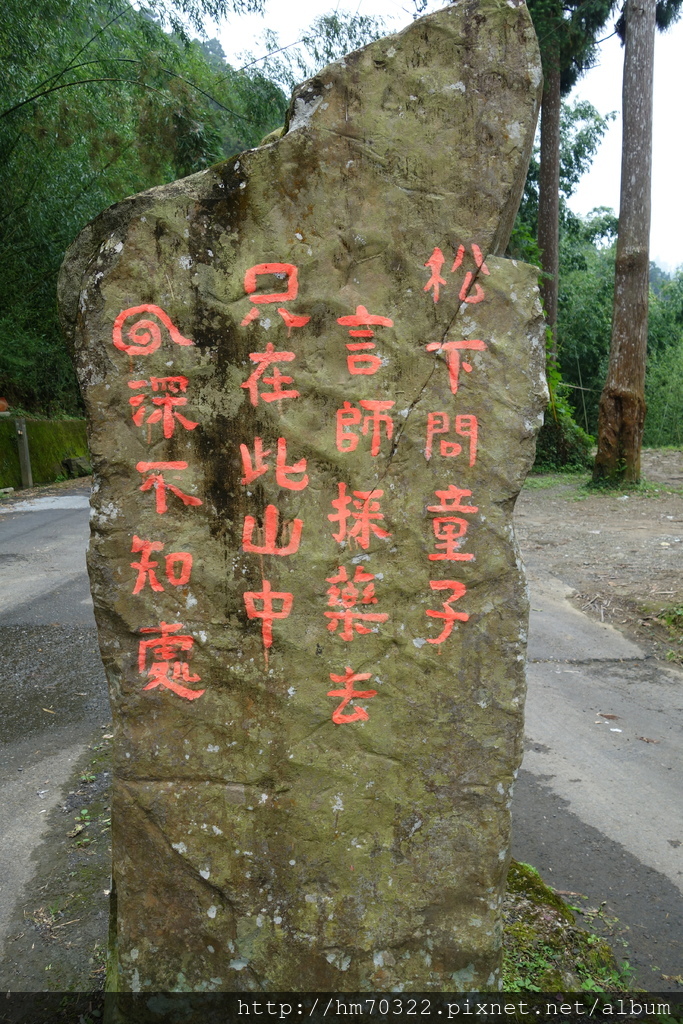 松下問童子
言師採藥去
只在此山中
雲深不知處
http://hm70322.pixnet.net/album